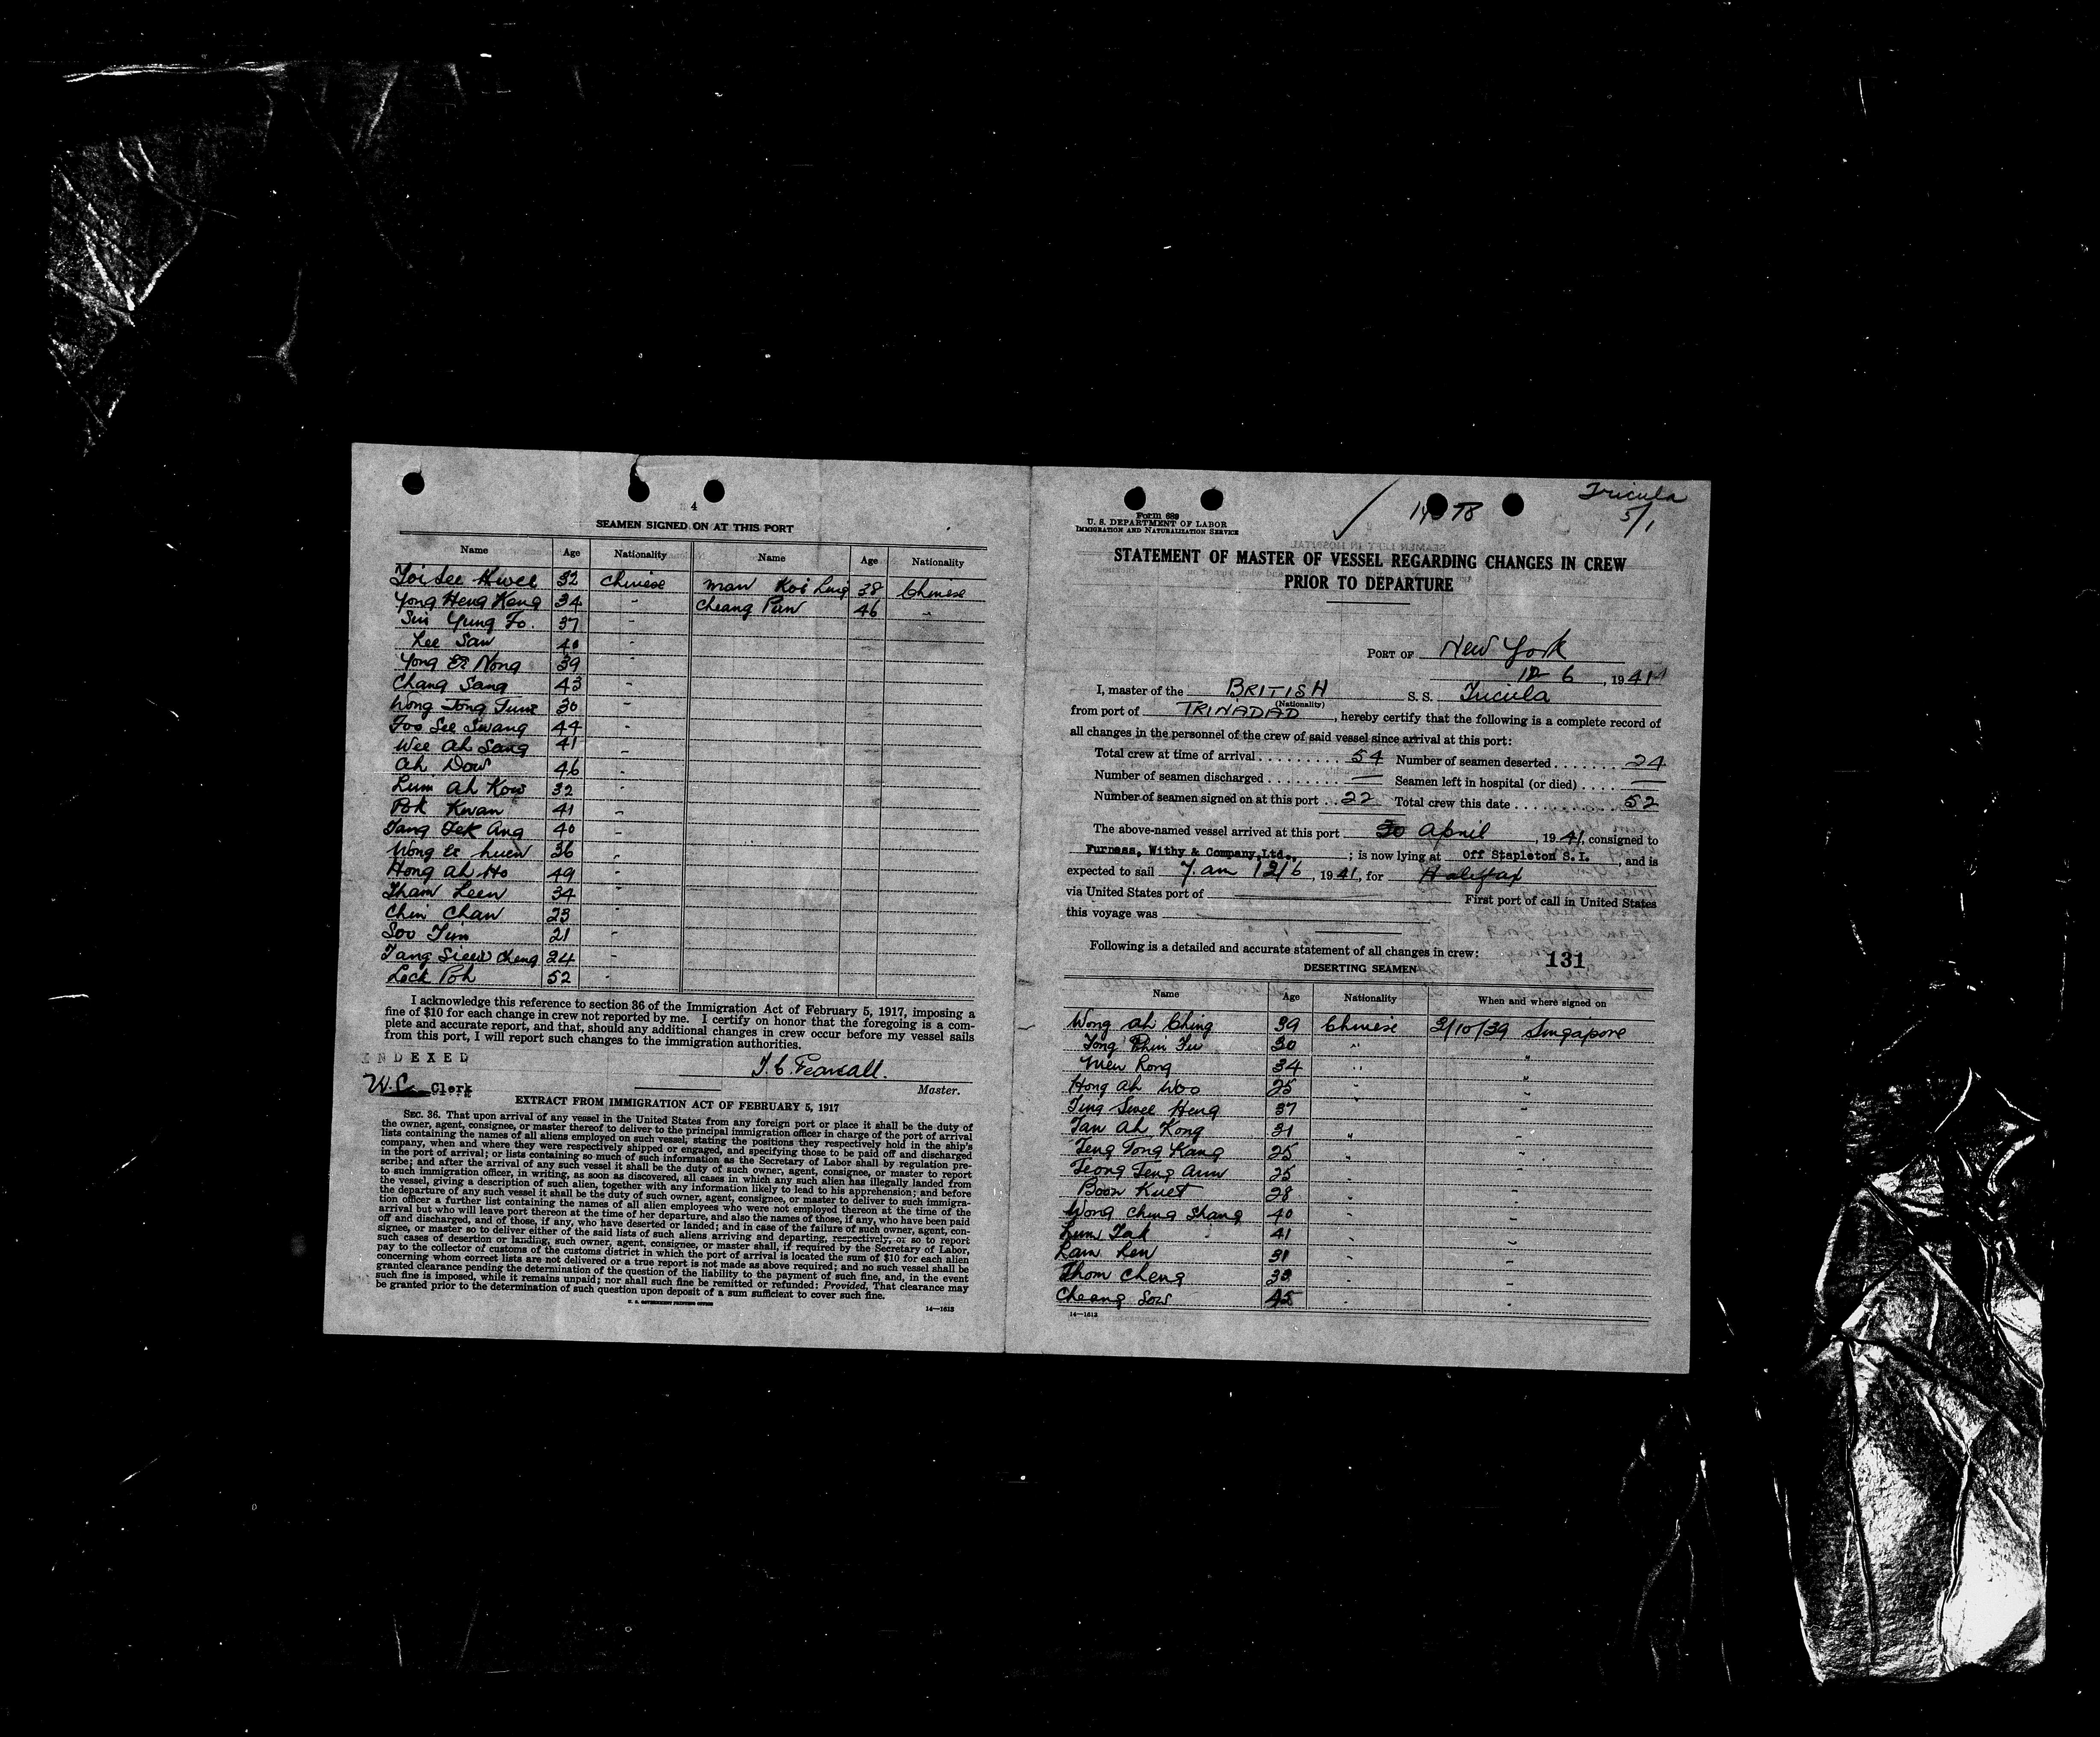 4
SEAMEN SIGNED ON AT THIS PORT
Name Age Nationality Name Age Nationality
Toi See Kwee 32 Chinese Man Koi Ling 38 Chinese
Yong Heng Keng 34 " Cheang Pun 46 "
Sin Yung Fo. 37 "
Lee San 40 "
Yong Er Nong 39 "
Chang Sang 43 "
Wong Tong Tune 30 "
Foo See Swang 44 "
Wee Ah Sang 41 "
Ah Dow 46 "
Lum Ah Kow 32 "
Pok Kwan 41 "
Tang Tek Ang 40 "
Wong Er Luen 36 "
Hong Ah Ho 49 "
Tham Leen 34 "
Chin Chan 23 "
Soo Tun 21 "
Tang Siew Cheng 24 "
Lock Poh 52 "
I acknowledge this reference to section 36 of the Immigration Act of February 5, 1917, imposing a
fine of $10 for each change in crew not reported by me. I certify on honor that the foregoing is a com-
plete and accurate report, and that, should any additional changes in crew occur before my vessel sails
from this port, I will report such changes to the immigration authorities.
INDEXED
Master.
Clerk
EXTRACT FROM IMMIGRATION ACT OF FEBRUARY 5, 1917
SEC. 36. That upon arrival of any vessel in the United States from any foreign port or place it shall be the duty of
the owner, agent, consignee, or master thereof to deliver to the principal immigration officer in charge of the port of arrival
lists containing the names of all aliens employed on such vessel, stating the positions they respectively hold in the ship's
company, when and where they were respectively shipped or engaged, and specifying those to be paid off and discharged
in the port of arrival; or lists containing so much of such information as the Secretary of Labor shall by regulation pre-
scribe; and after the arrival of any such vessel it shall be the duty of such owner, agent, consignee, or master to report
to such immigration officer, in writing, as soon as discovered, all cases in which any such alien has illegally landed from
the vessel, giving a description of such alien, together with any information likely to lead to his apprehension; and before
the departure of any such vessel it shall be the duty of such owner, agent, consignee, or master to deliver to such immigra-
tion officer a further list containing the names of all alien employees who were not employed thereon at the time of the
arrival but who will leave port thereon at the time of her departure, and also the names of those, if any, who have been paid
off and discharged, and of those, if any, who have deserted or landed; and in case of the failure of such owner, agent, con-
signee, or master so to deliver either of the said lists of such aliens arriving and departing, respectively, or so to report
such cases of desertion or landing, such owner, agent, consignee, or master shall, if required by the Secretary of Labor,
pay to the collector of customs of the customs district in which the port of arrival is located the sum of $10 for each alien
concerning whom correct lists are not delivered or a true report is not made as above required; and no such vessel shall be
granted clearance pending the determination of the question of the liability to the payment of such fine, and, in the event
such fine is imposed, while it remains unpaid; nor shall such fine be remitted or refunded: Provided, That clearance may
be granted prior to the determination of such question upon deposit of a sum sufficient to cover such fine.
U. S. GOVERNMENT PRINTING OFFICE 14—1612
Tricula
5/1
Form 689
U. S. DEPARTMENT OF LABOR
IMMIGRATION AND NATURALIZATION SERVICE
STATEMENT OF MASTER OF VESSEL REGARDING CHANGES IN CREW
PRIOR TO DEPARTURE
PORT OF New York
12 6, 1941
I, master of the BRITISH S. S. Tricula
(Nationality)
from port of TRINADAD, hereby certify that the following is a complete record of
all changes in the personnel of the crew of said vessel since arrival at this port:
Total crew at time of arrival 54 Number of seamen deserted 24
Number of seamen discharged — Seamen left in hospital (or died) —
Number of seamen signed on at this port 22 Total crew this date 52
The above-named vessel arrived at this port 30 April, 1941, consigned to
Furness, Withy & Company, Ltd., ; is now lying at Off Stapleton S.I., and is
expected to sail 7. am 12/6, 1941, for Halifax
via United States port of First port of call in United States
this voyage was
Following is a detailed and accurate statement of all changes in crew:
131
DESERTING SEAMEN
Name Age Nationality When and where signed on
Wong Ah Ching 39 Chinese 3/10/39 Singapore
Tong Phin Fu 30 " "
Mew Kong 34 " "
Hong Ah Woo 25 " "
Ting Swee Heng 37 " "
Tan Ah Kong 31 " "
Teng Tong Kang 25 " "
Teong Teng Ann 25 " "
Boon Kuet 28 " "
Wong Ching Shang 40 " "
Lum Tak 41 " "
Lam Len 31 " "
Thom Cheng 30 " "
Cheang Sow 45 " "
14—1612